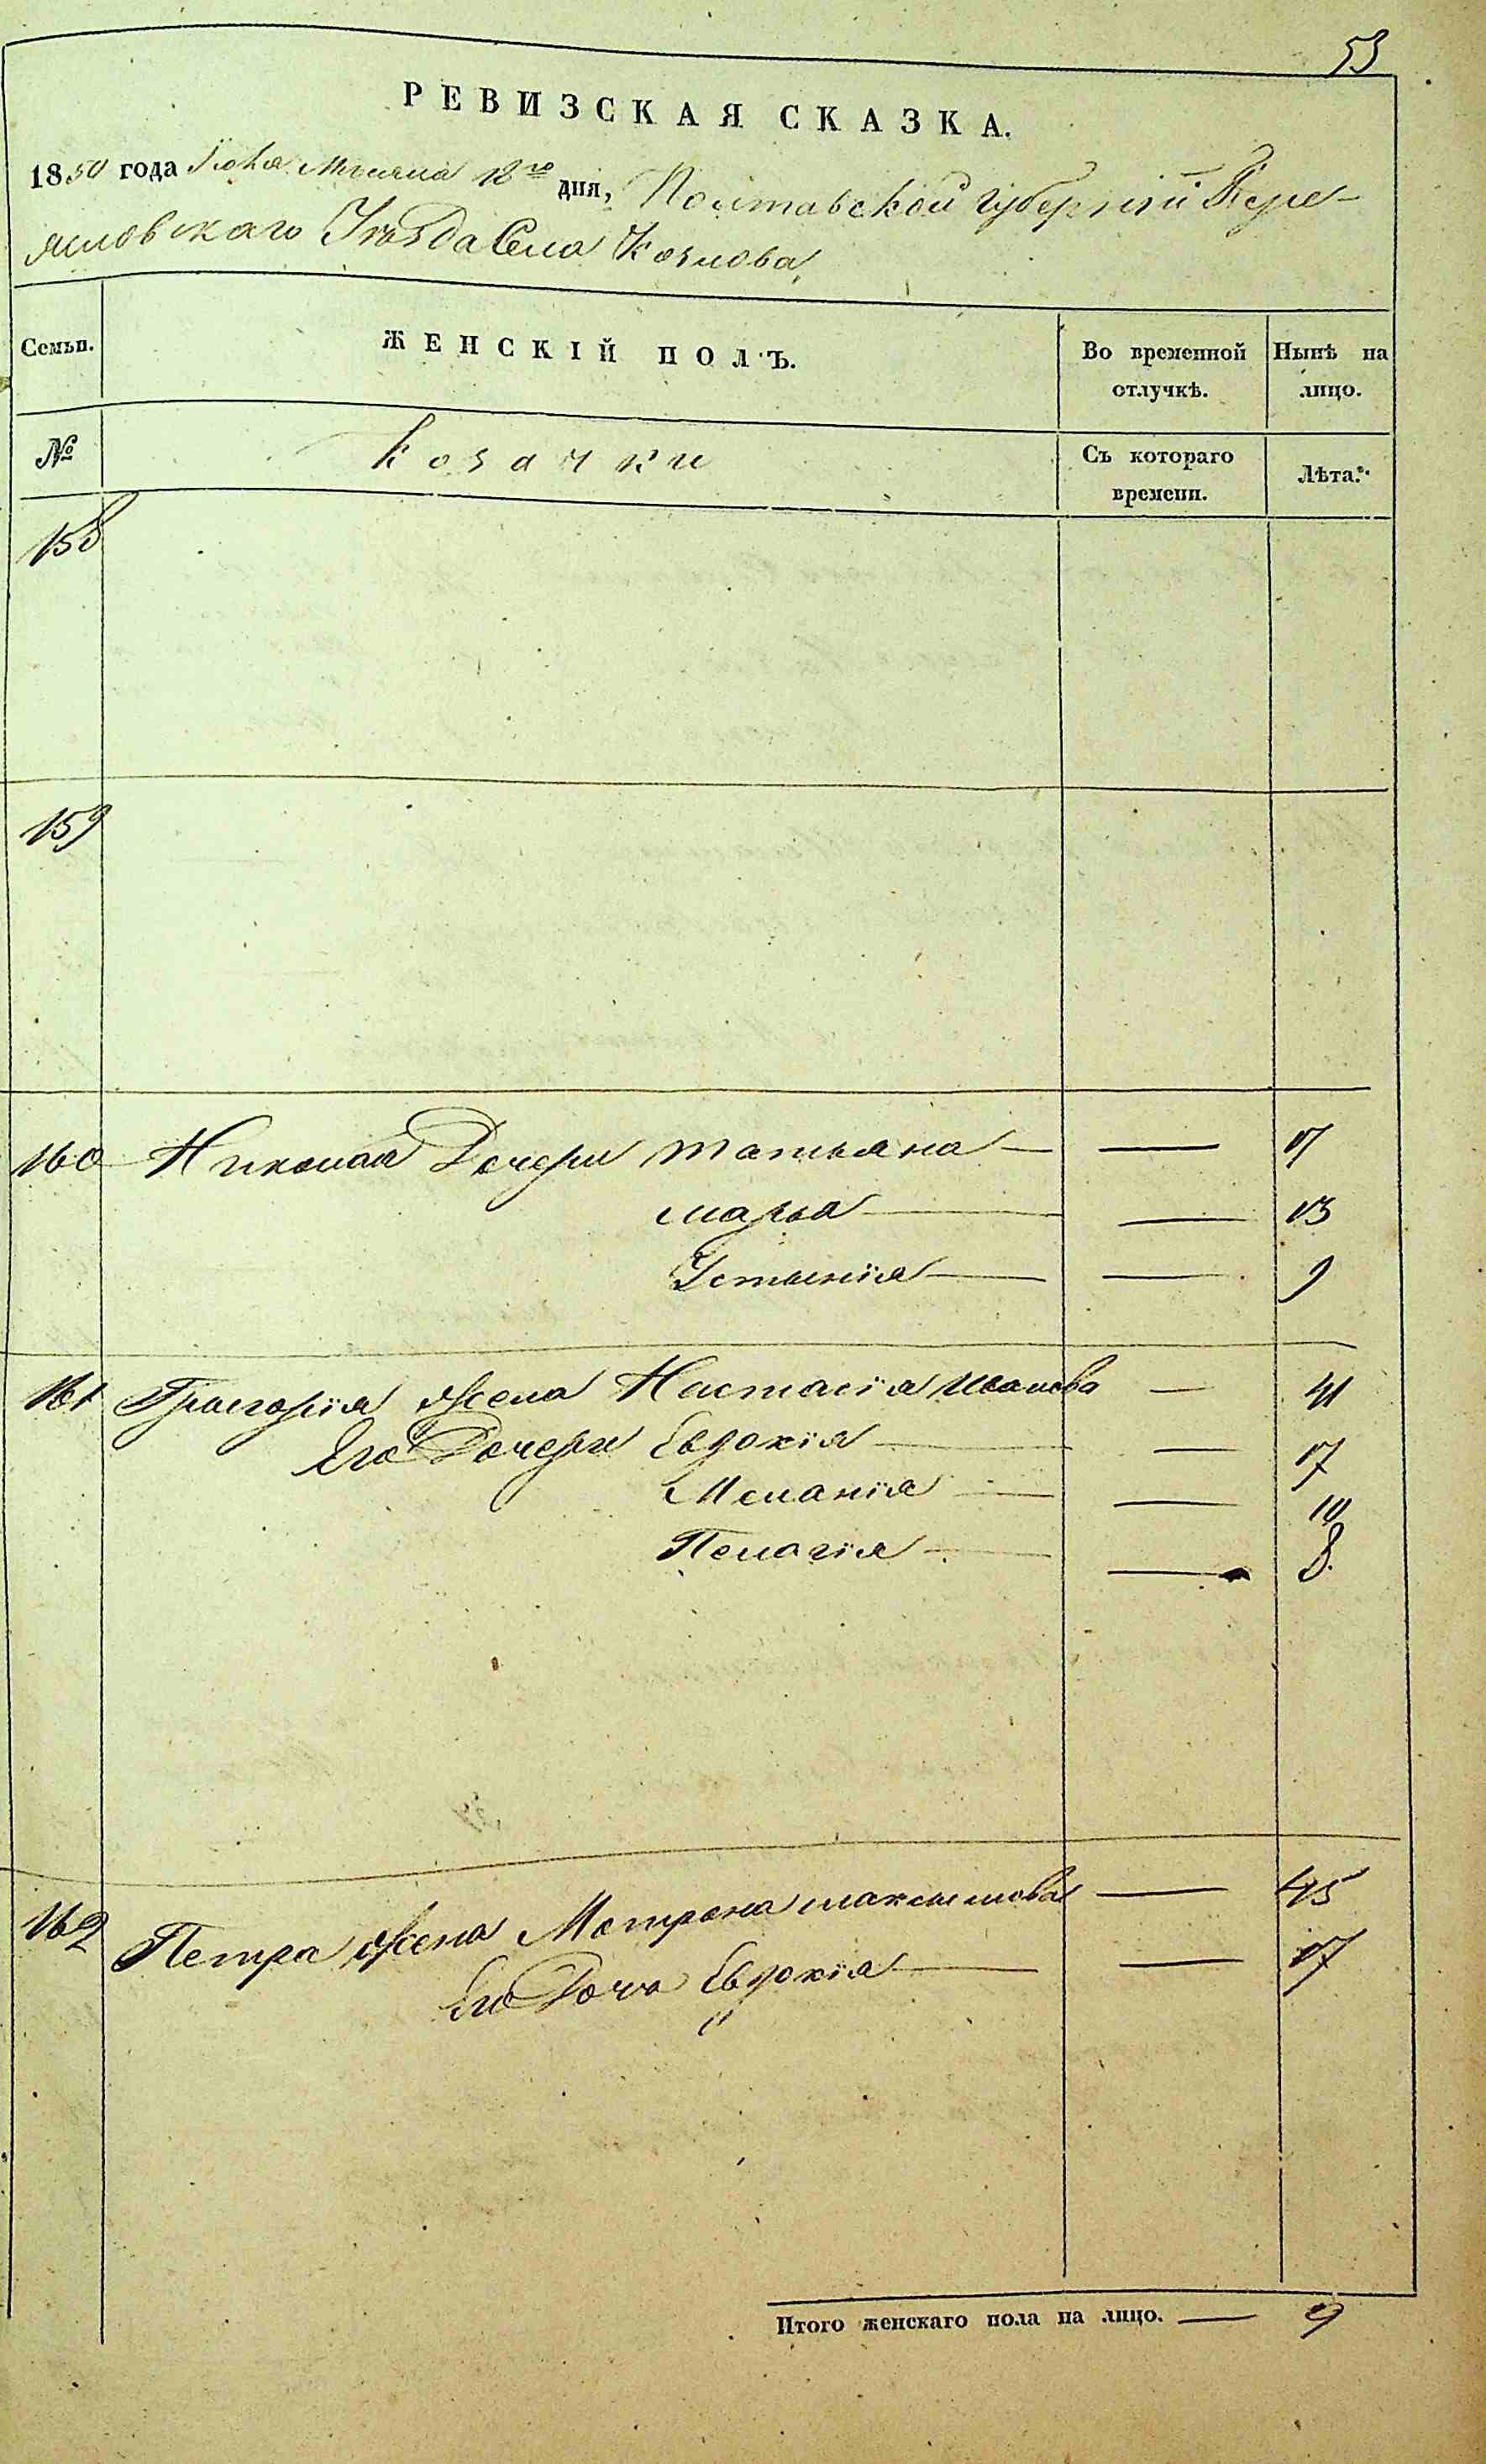 53
РЕВИЗСКАЯ СКАЗКА.
1850 года Июня Месяца 12го дня, Полтавской губерніи Пере-
ясловскаго Уѣзда Села Козлова
Семьи. ЖЕНСКІЙ ПОЛЪ. Во временной отлучкѣ. Нынѣ на лицо.
№ Козачки Съ котораго времени. Лѣта.
158
159
160 Николая Дочери Татьяна — — 17
Марья — — 13
Устинія — — 9
161 Григорія Жена Настасія Иванова — 41
Его Дочери Евдокія — — 17
Меланія — — 10
Пелагія — — 8.
162 Петра Жена Мотрона Максимова — 45
Его Дочь Евдокія — — 17
Итого женскаго пола на лицо. — 9